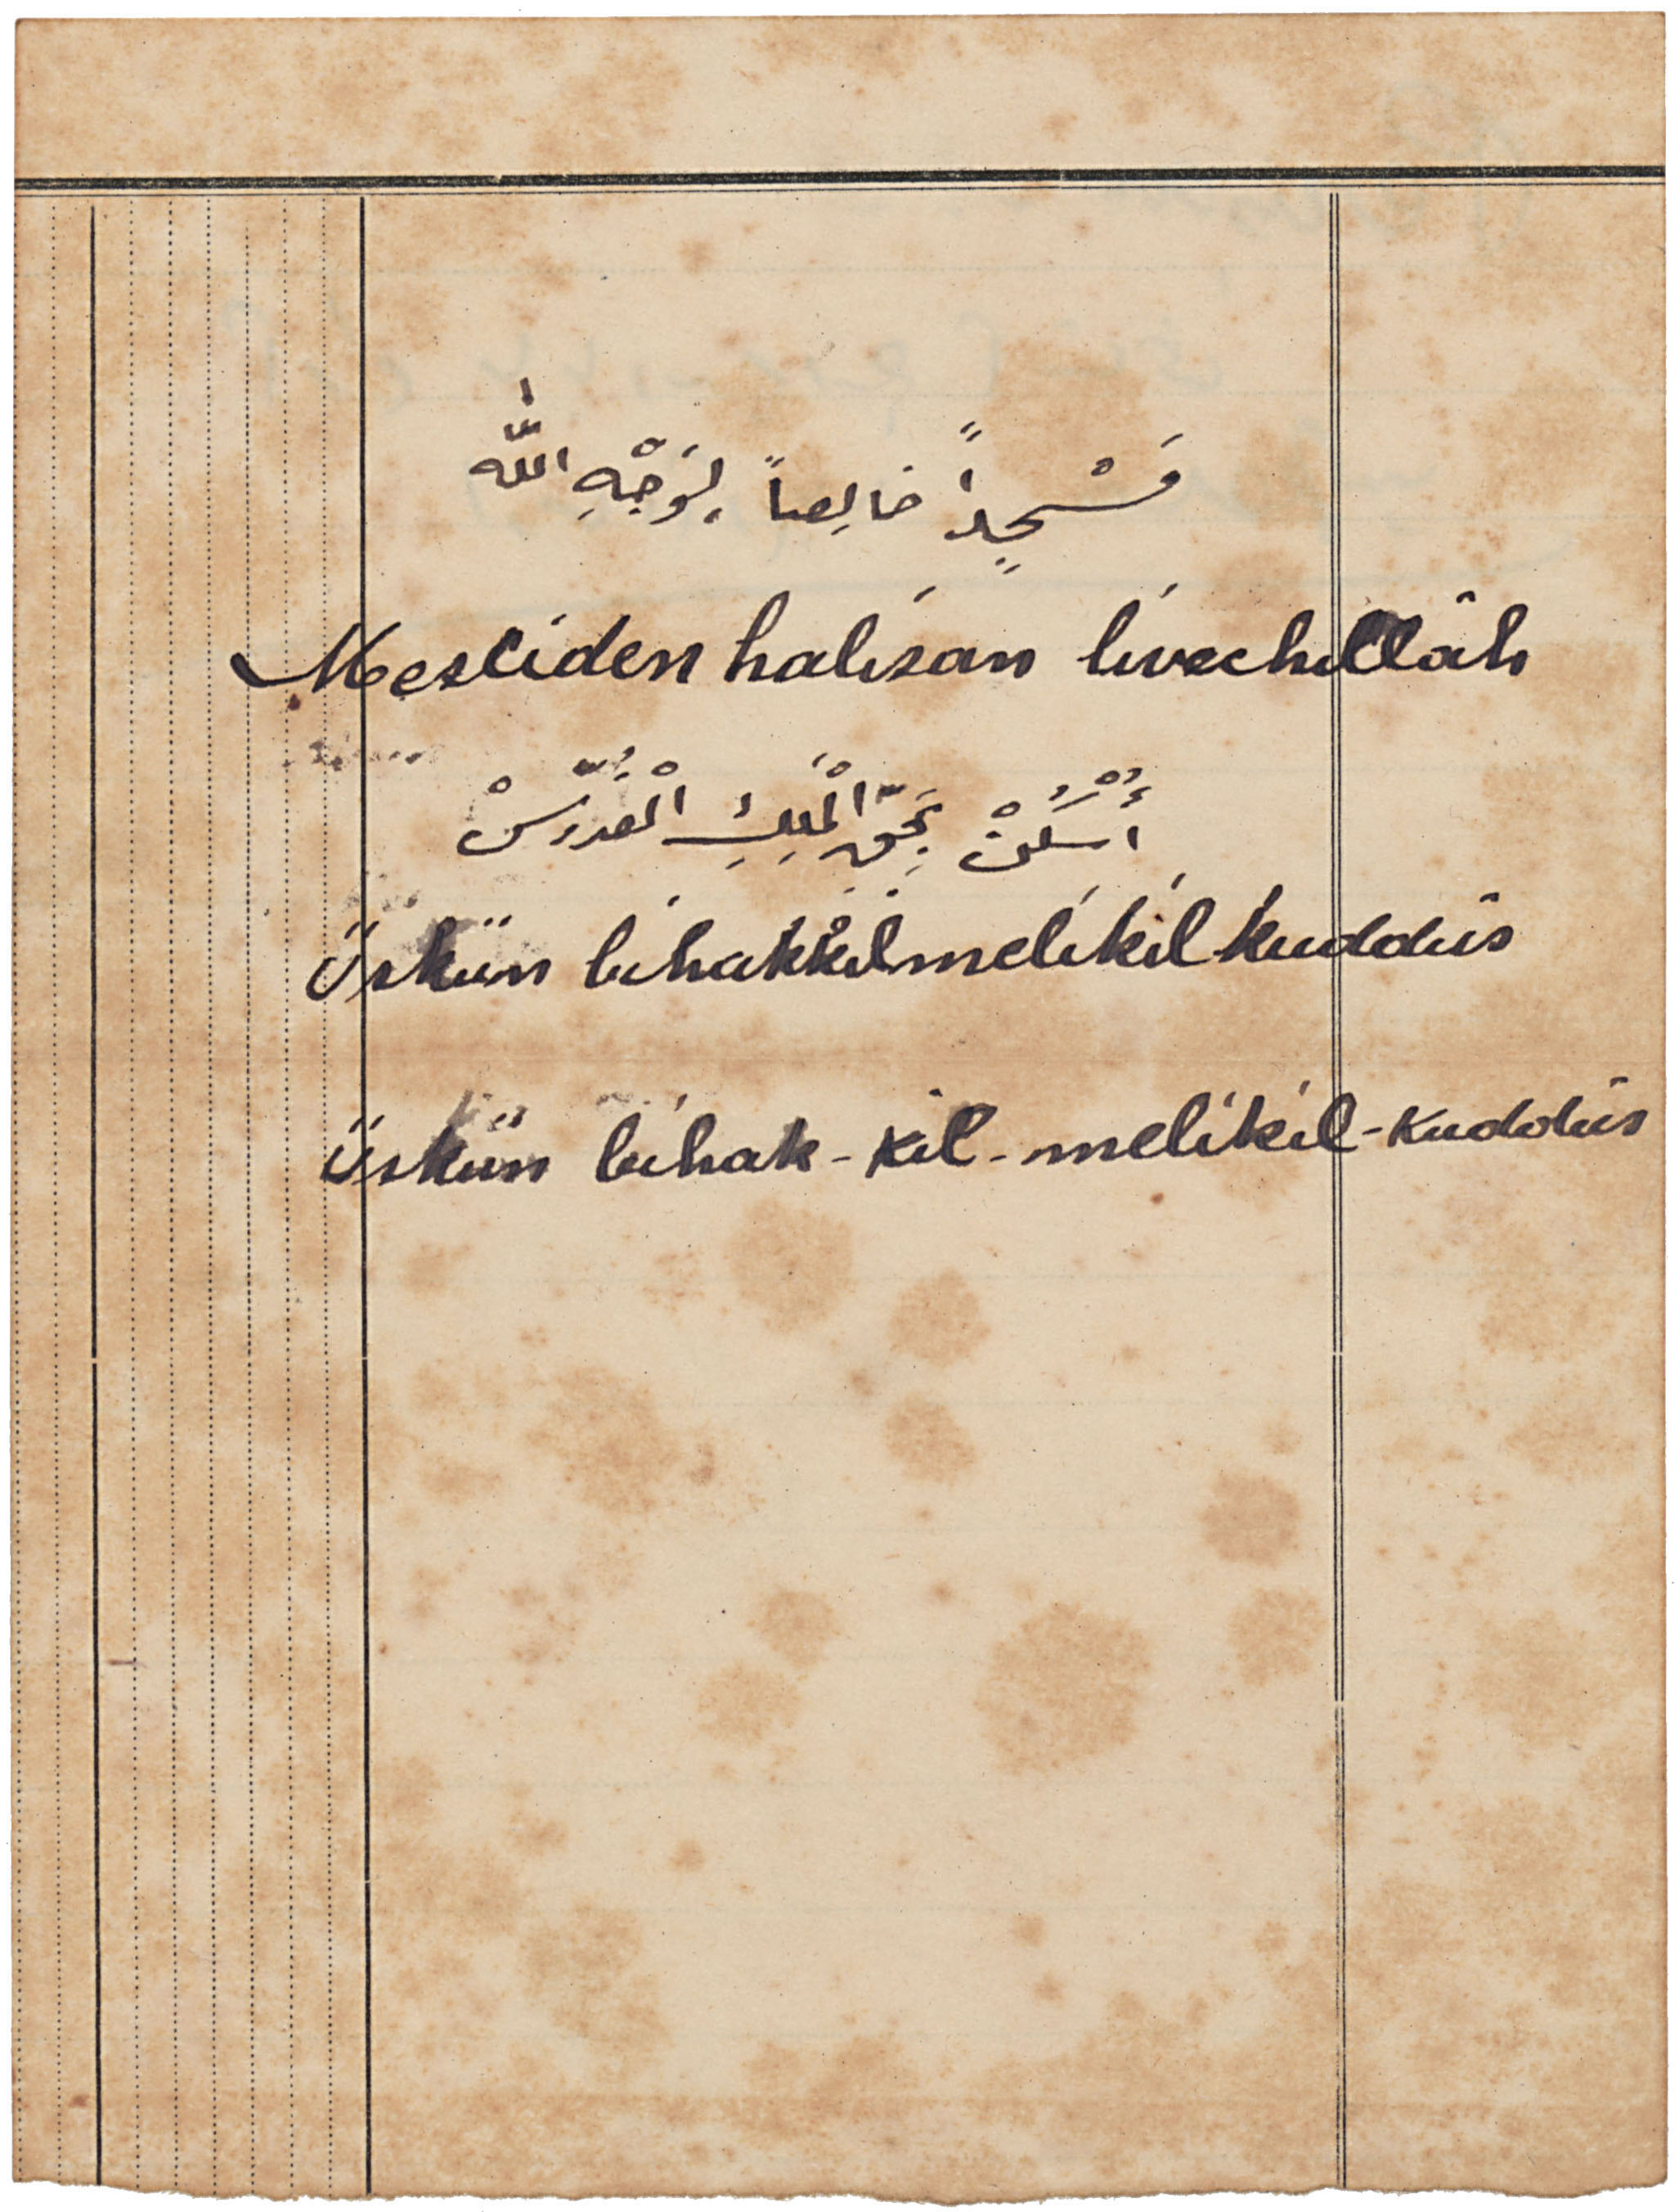 مَسْجِداً خَالِصاً لِوَجْهِ اللّٰه
Mescíden halísan lívechíllâh
أُسْكُنْ بِحَقِّ الْمَلِكِ الْقُدُّسْ
Üskün bíhakkílmelíkíl kuddûs
Üskün bíhak-kíl-melíkíl-kuddûs